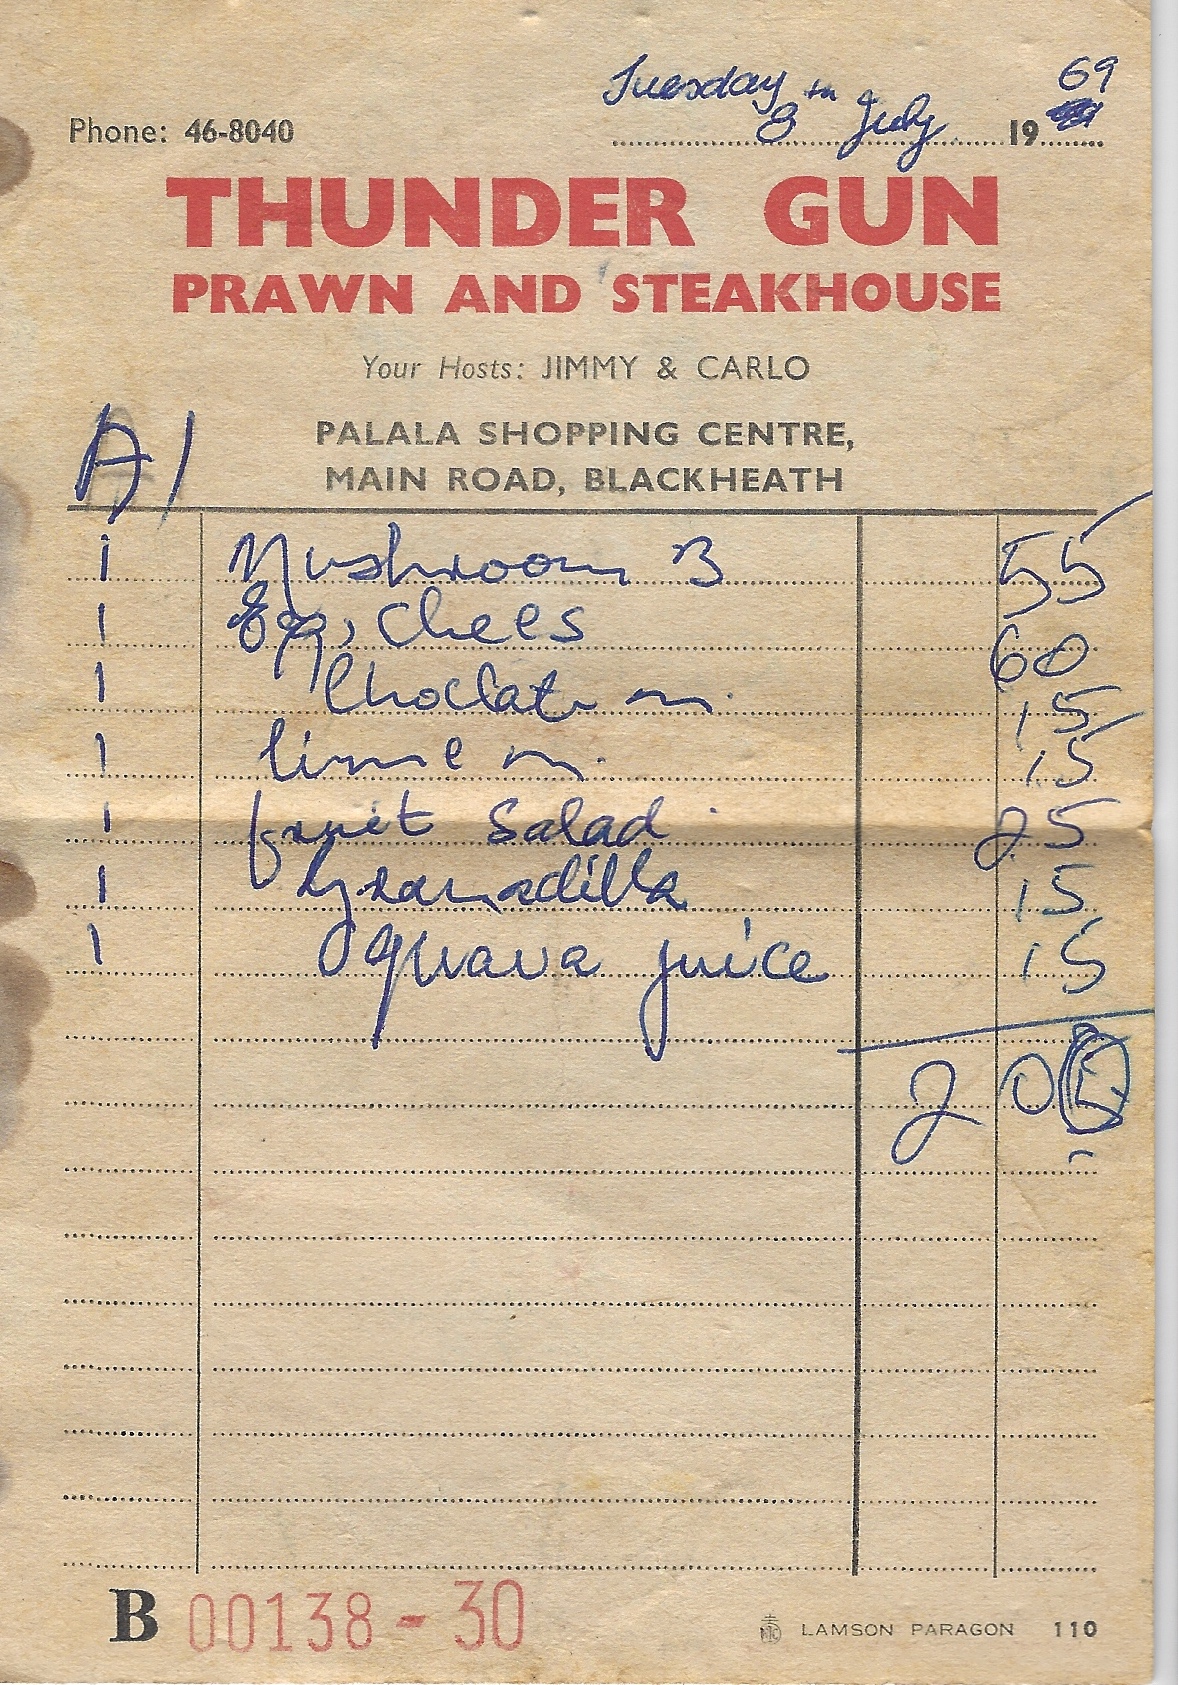 Tuesday 69
Phone: 46-8040 8th July 19
THUNDER GUN
PRAWN AND STEAKHOUSE
Your Hosts: JIMMY & CARLO
PALALA SHOPPING CENTRE,
MAIN ROAD, BLACKHEATH
A1
1 Mushroom B 55
1 Egg, Chees 60
1 Choclate m. 15
1 lime m. 15
1 fruit Salad 25
1 Granadilla 15
1 guava juice 15
2 05
B 00138-30 LAMSON PARAGON 110